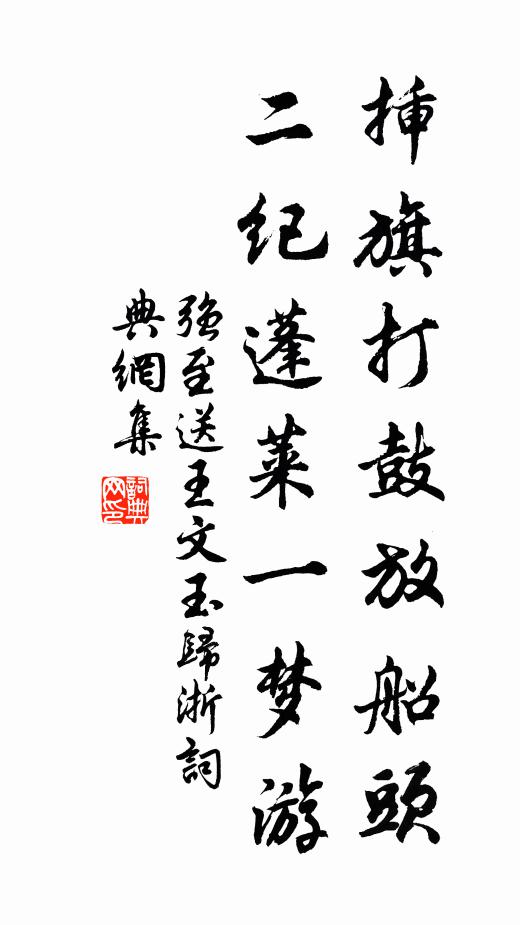 揷旗打鼓放船頭
二紀蓬萊一梦游
强至送王文玉歸浙詞
典網集
詞典
网印